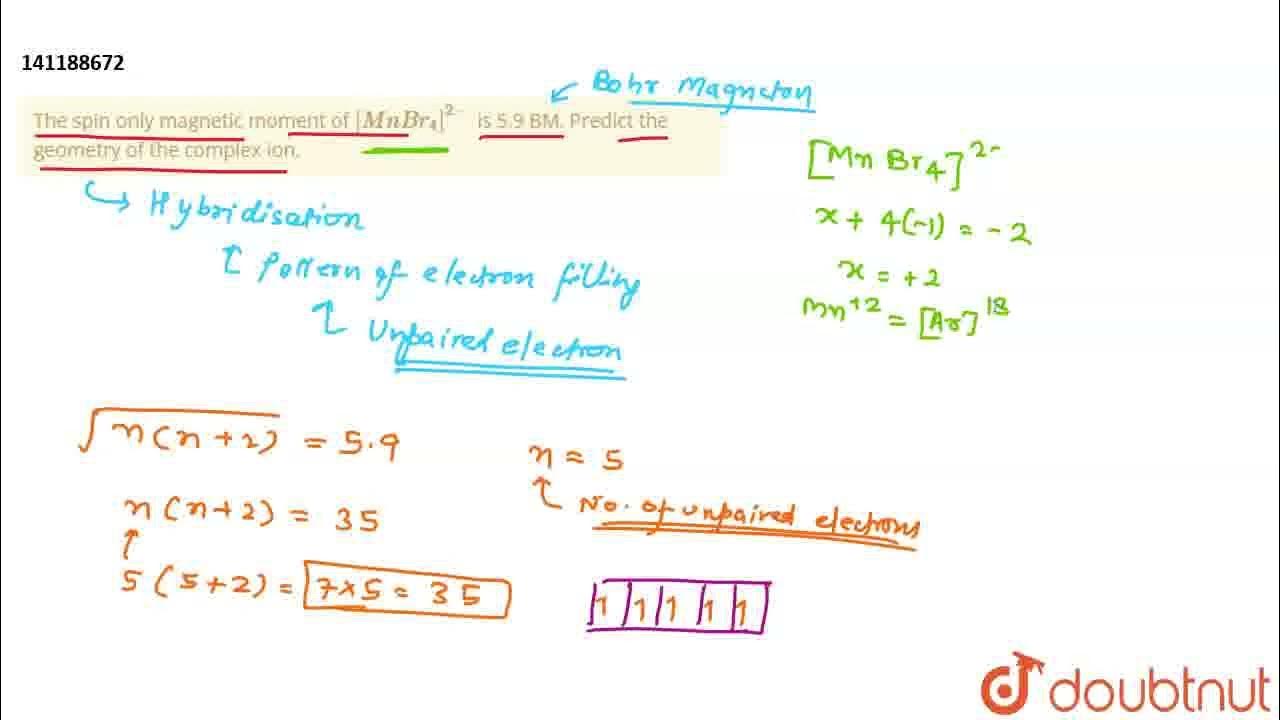 141188672
Bohr Magneton
The spin only magnetic moment of [MnBr₄]²⁻ is 5.9 BM. Predict the
geometry of the complex ion.
Hybridisation
Pattern of electron filling
Unpaired electron
[Mn Br₄]²⁻
x + 4(-1) = -2
x = +2
Mn⁺² = [Ar]¹⁸
√n(n+2) = 5.9
n(n+2) = 35
5(5+2) = 7×5 = 35
n = 5
No. of unpaired electrons
1 1 1 1 1
doubtnut